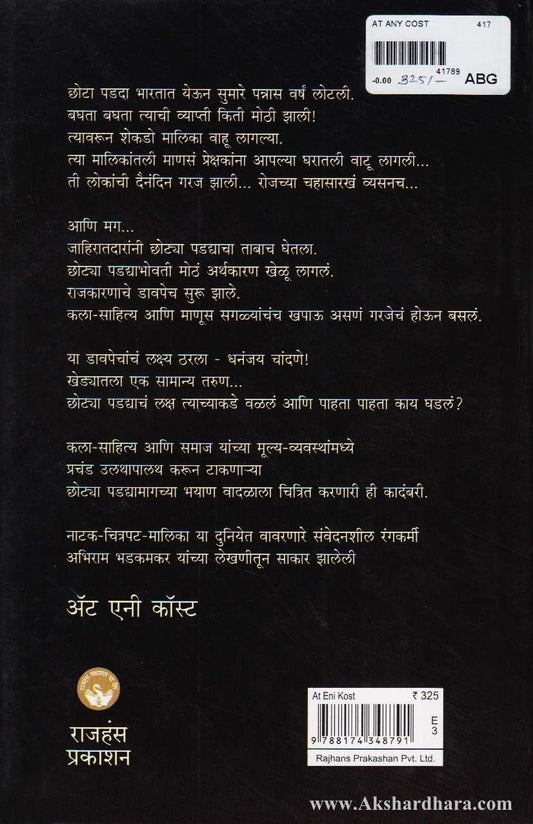 AT ANY COST 417
41789
-0.00 325/- ABG
छोटा पडदा भारतात येऊन सुमारे पन्नास वर्षं लोटली.
बघता बघता त्याची व्याप्ती किती मोठी झाली!
त्यावरून शेकडो मालिका वाहू लागल्या.
त्या मालिकांतली माणसं प्रेक्षकांना आपल्या घरातली वाटू लागली...
ती लोकांची दैनंदिन गरज झाली... रोजच्या चहासारखं व्यसनच...
आणि मग...
जाहिरातदारांनी छोट्या पडद्याचा ताबाच घेतला.
छोट्या पडद्याभोवती मोठं अर्थकारण खेळू लागलं.
राजकारणाचे डावपेच सुरू झाले.
कला-साहित्य आणि माणूस सगळ्यांचंच खपाऊ असणं गरजेचं होऊन बसलं.
या डावपेचांचं लक्ष्य ठरला - धनंजय चांदणे!
खेड्यातला एक सामान्य तरुण...
छोट्या पडद्याचं लक्ष त्याच्याकडे वळलं आणि पाहता पाहता काय घडलं?
कला-साहित्य आणि समाज यांच्या मूल्य-व्यवस्थांमध्ये
प्रचंड उलथापालथ करून टाकणाऱ्या
छोट्या पडद्यामागच्या भयाण वादळाला चित्रित करणारी ही कादंबरी.
नाटक-चित्रपट-मालिका या दुनियेत वावरणारे संवेदनशील रंगकर्मी
अभिराम भडकमकर यांच्या लेखणीतून साकार झालेली
ॲट एनी कॉस्ट
राजहंस
प्रकाशन
At Eni Kost ₹ 325
E
3
9 788174 348791
Rajhans Prakashan Pvt. Ltd.
www.Akshardhara.com